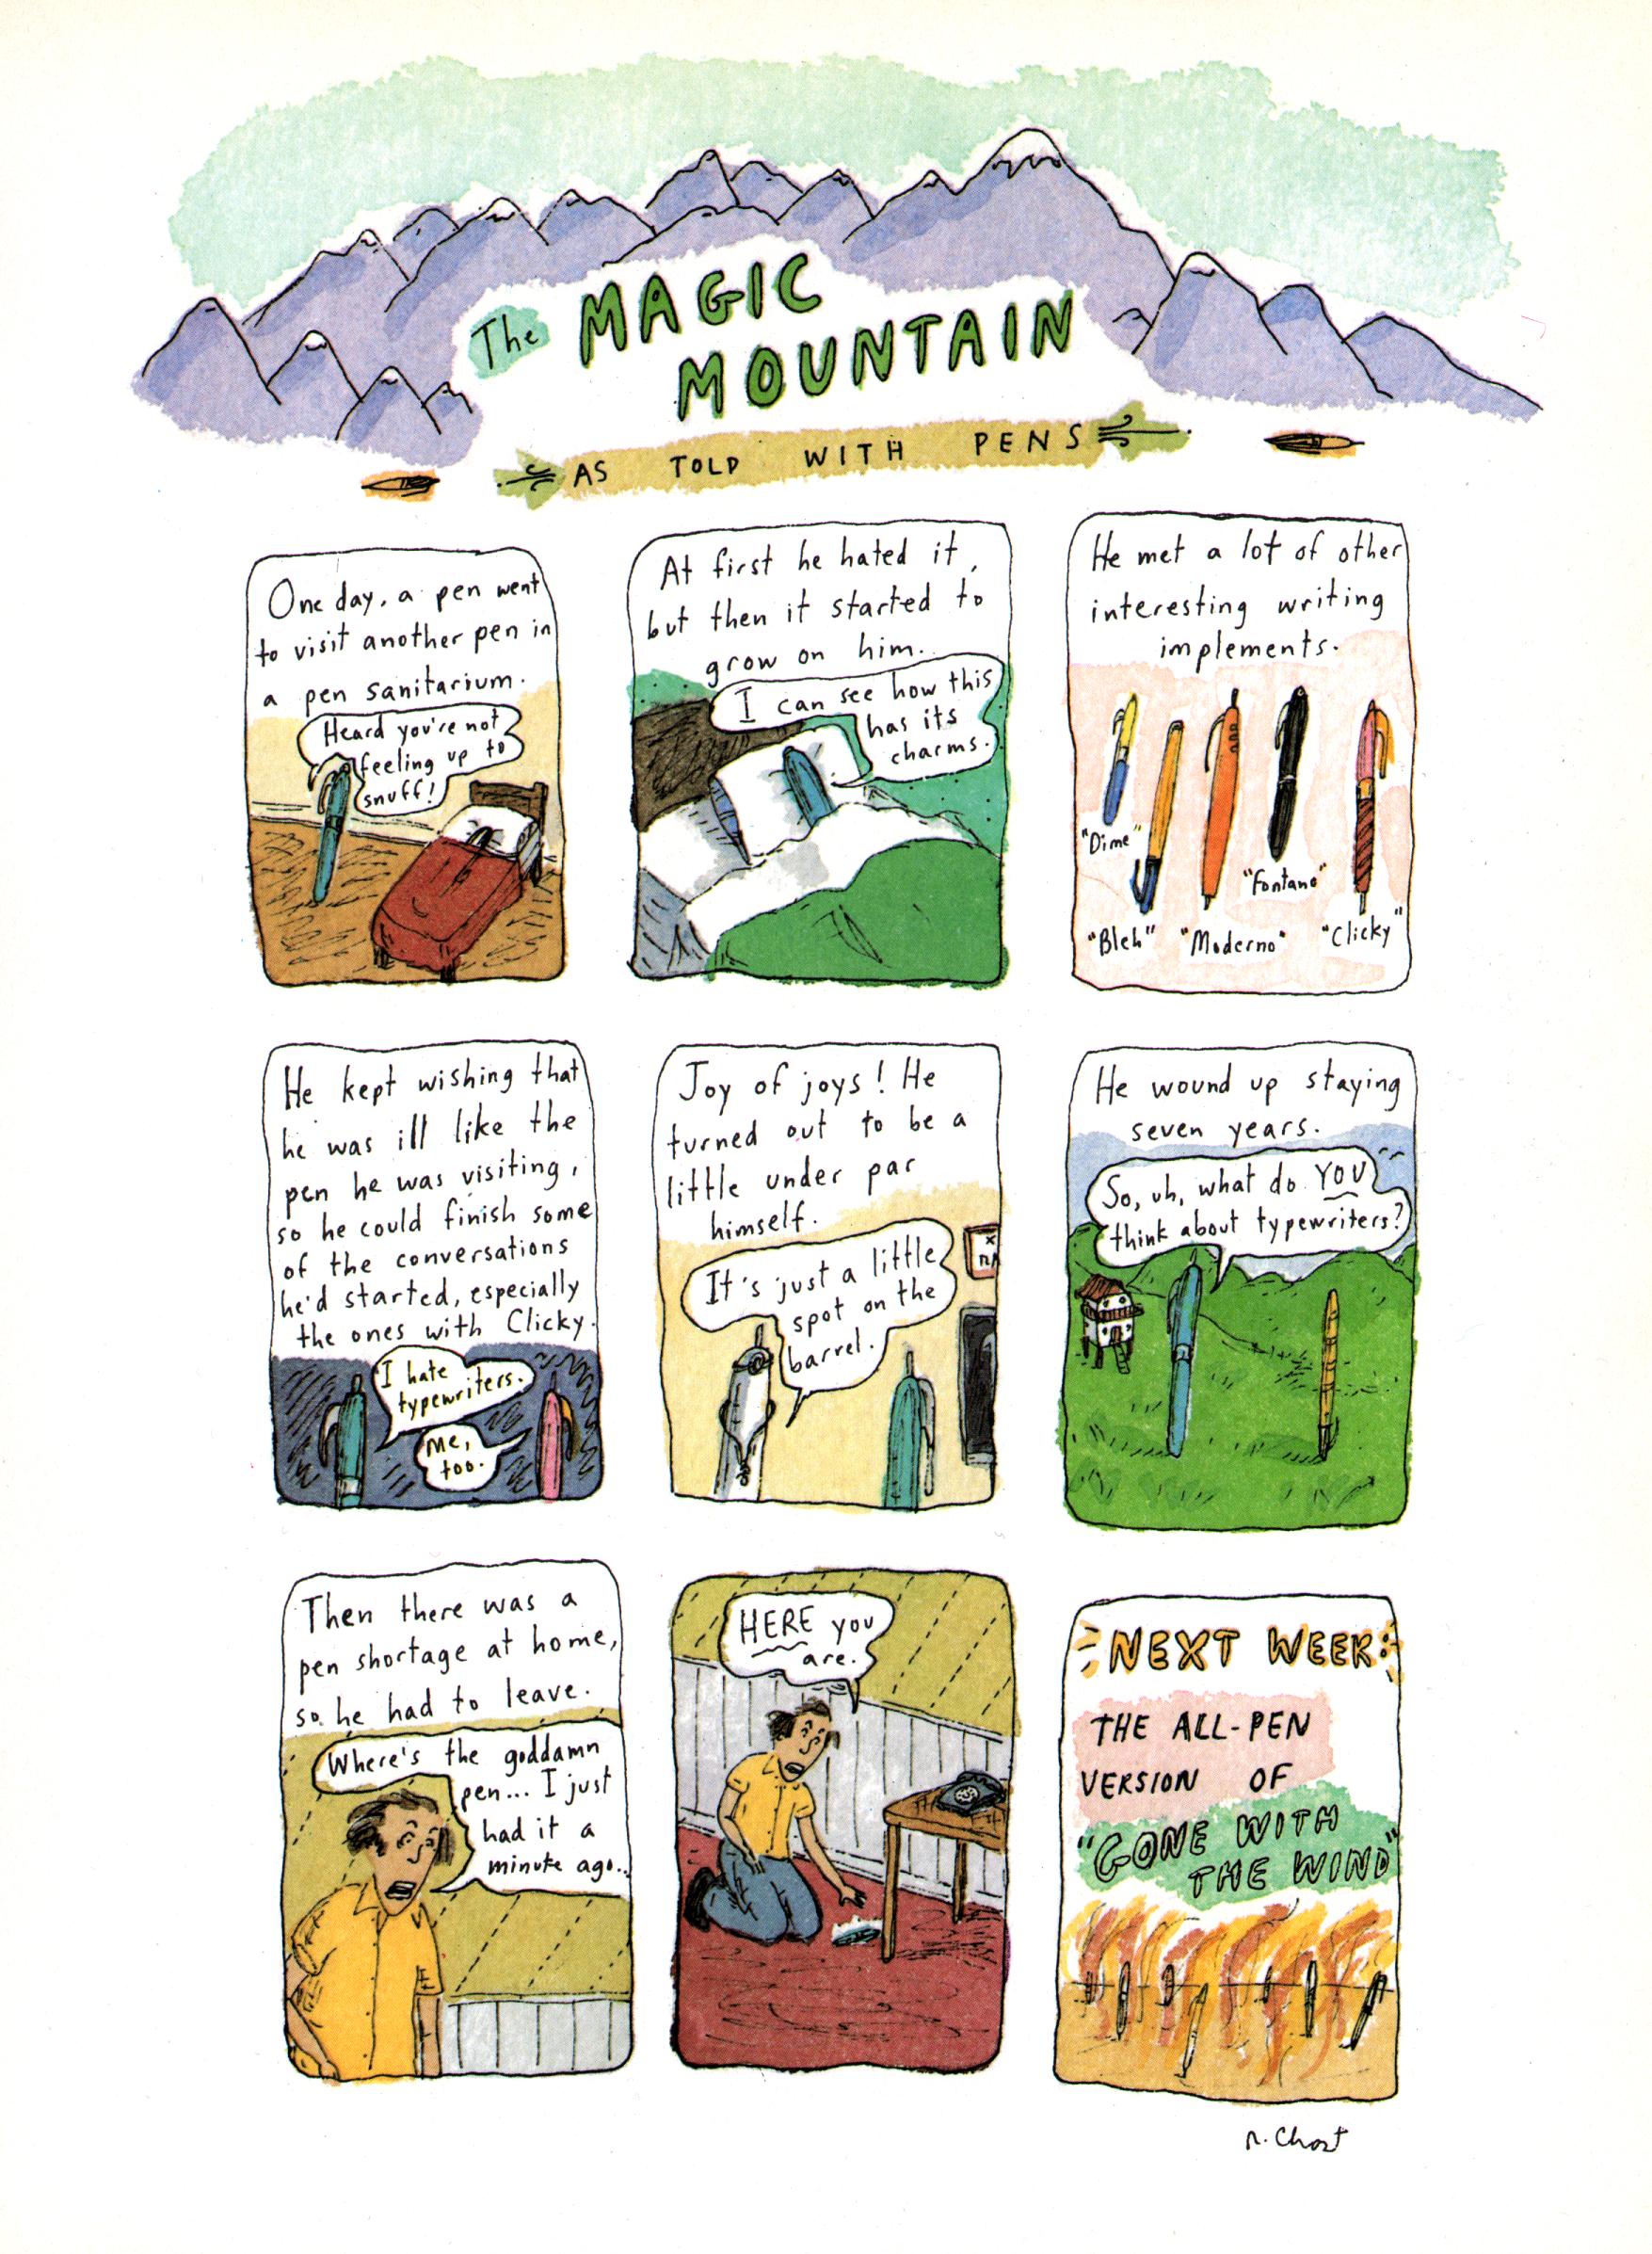 The MAGIC
MOUNTAIN
AS TOLD WITH PENS
One day, a pen went
to visit another pen in
a pen sanitarium.
Heard you're not
feeling up to
snuff!
At first he hated it,
but then it started to
grow on him.
I can see how this
has its
charms.
He met a lot of other
interesting writing
implements.
"Dime"
"Bleh"
"Moderno"
"Fontano"
"Clicky"
He kept wishing that
he was ill like the
pen he was visiting,
so he could finish some
of the conversations
he'd started, especially
the ones with Clicky.
I hate
typewriters.
Me,
too.
Joy of joys! He
turned out to be a
little under par
himself.
It's just a little
spot on the
barrel.
He wound up staying
seven years.
So, uh, what do YOU
think about typewriters?
Then there was a
pen shortage at home,
so he had to leave.
Where's the goddamn
pen... I just
had it a
minute ago...
HERE you
are.
NEXT WEEK:
THE ALL-PEN
VERSION OF
"GONE WITH
THE WIND"
R. Chast